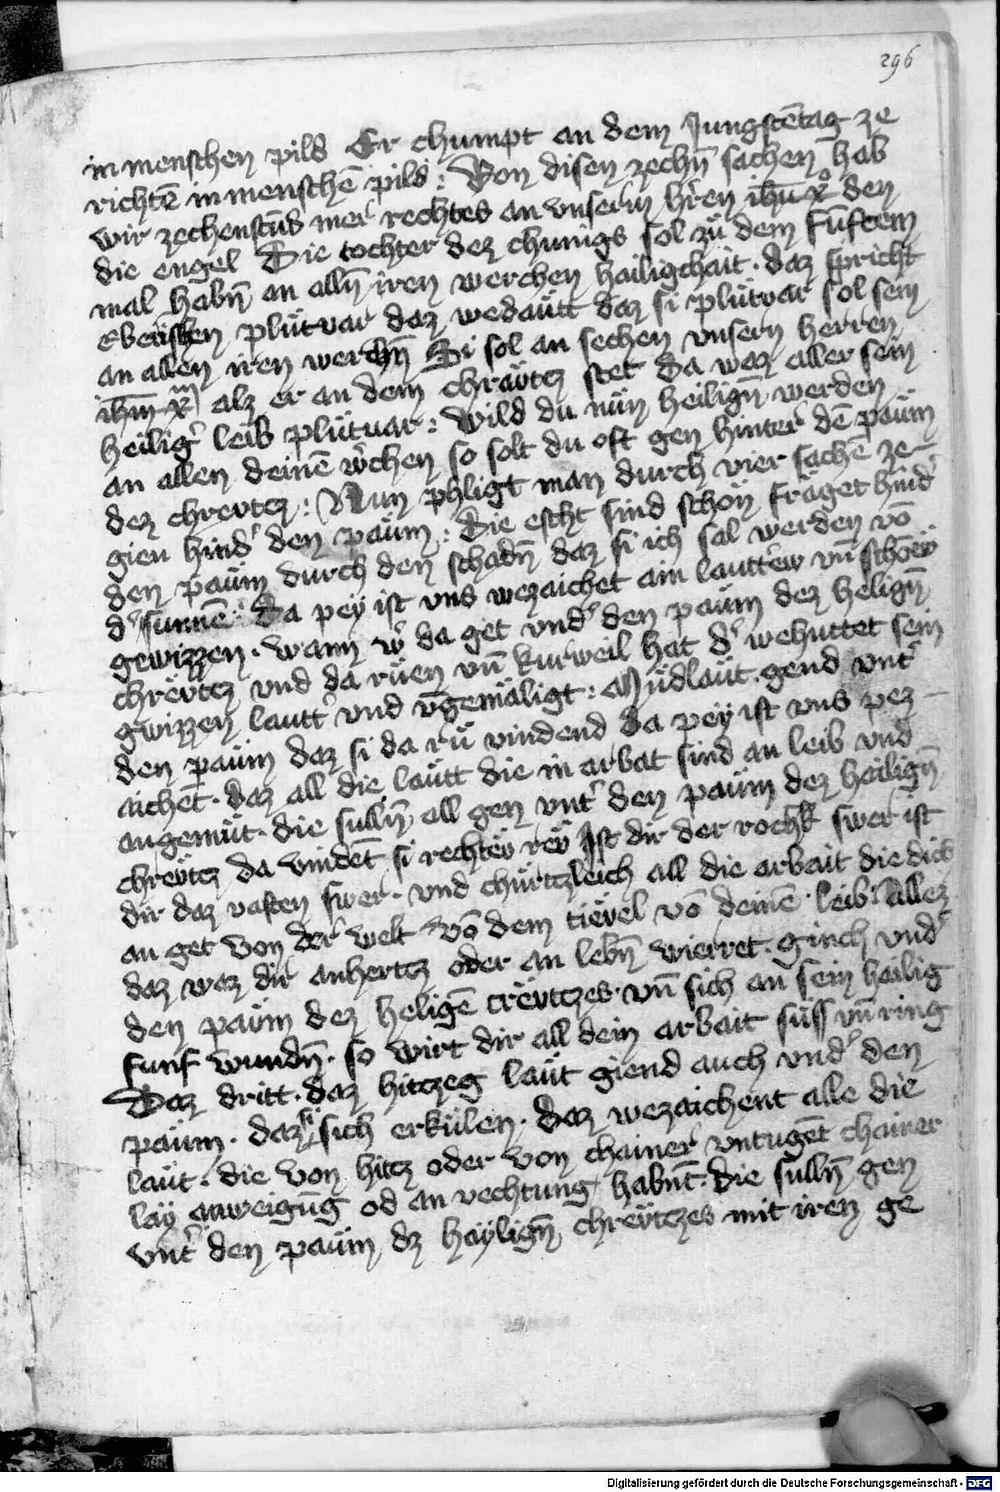 296
in menschen pild Er chumpt an dem Jungstētag ze
richtē in menschē pild : Von disen zechn̄ sachen hab
wir zechenstūd mer rechtes an vnserm hr̄en ih̄u x̄o den
die engel Die tochter dez chunigs sol zů dem fünftem
mal habn̄ an alln̄ iren werchen hailigchait · daz spricht
plůtvar daz wedäutt daz si plůtvar sol sein
an allen iren werchn̄ Si sol an sechen vnsern herren
ih̄m x̄m alz er an dem chrävtcz stet da waz aller sein
heilig' leib plůtvar : Wild du nün heilign̄ werden
an allen deinē w'chen so solt du oft gen hinter dē paüm
dez chrevtcz : Nun phligt man durch vier sachē ze
gien hind' den paüm : Die escht sind schön fräget hind'
den paüm durch den schadn̄ daz si ich sal werden vō
d' sunnē : Da pey ist vns wezaichet ain lautter vn̄ schönew
gewizzen · wann w' da get vnd' den paüm dez heilign̄
chrëvtcz vnd da rüen vn̄ kurweil hat d' wehuttet sein
gwizzen lautt' vnd v̄gemäligt : Müdläut · gend vnt'
den paüm daz si da rů vindend Da pey ist vns pez
aichēt · daz all die läutt die in arbat sind an leib vnd
an gemüt · die sulln̄ all gen vnt' den paüm dez heilign̄
chrëvtcz da vindēt si rechtëv rëv Ist dir der rochk swer ist
dir daz vasten swer · vnd chürtzleich all die arbait die dich
an get von der welt vō dem tiëvel vō deinē leib : Allez
daz waz dir anhertcz oder an lebn̄ wierret · ginch vnd'
den paüm dez heligē crëvtczes · vn̄ sich an sein heilig
funf wundn̄ · so wirt dir all dein arbait süss vn̄ ring
Daz dritt · daz hitczeg läut giend auch vnd' den
paüm · daz si sich erkülen · daz wezaichent alle die
läut · die von hitcz oder von chainer vntugēt chainer
läy anweigūg od an vechtung habnt̄ · die sülln̄ gen
vnt' den paüm dz haylign̄ chrëytczes mit iren ge
Digitalisierung gefördert durch die Deutsche Forschungsgemeinschaft - DFG